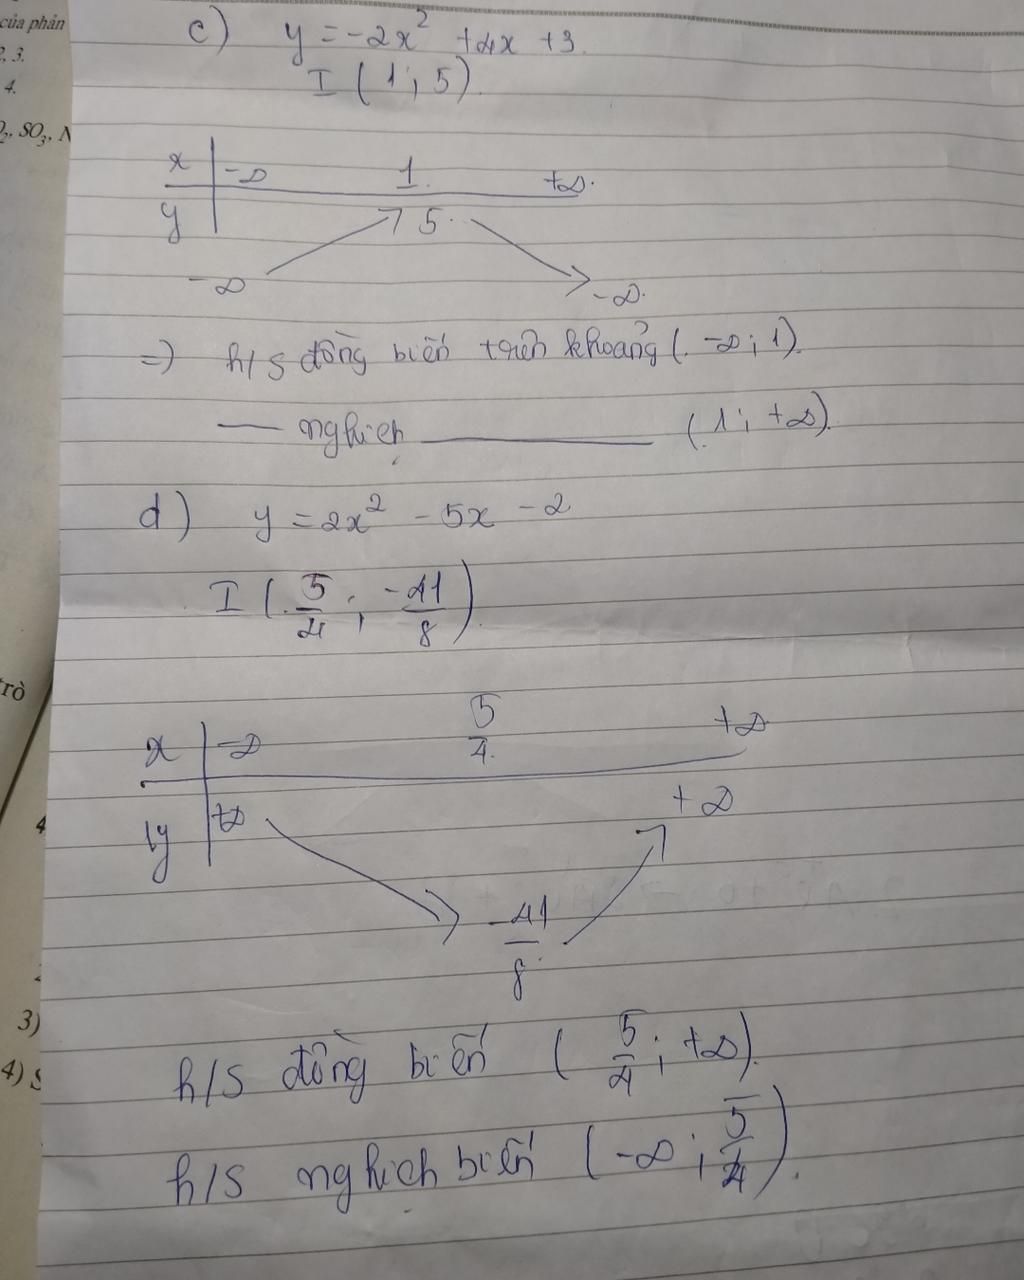 của phản
2, 3.
4.
O₂, SO₃, N
c) y = -2x² + 4x + 3.
I (1; 5).
x | -∞ 1 +∞
y | 5
-∞ -∞
=) h/s đồng biến trên khoảng (-∞; 1).
— nghịch ——— (1; +∞).
d) y = 2x² - 5x - 2
I (5/4; -41/8).
trò
x | -∞ 5/4 +∞
y | +∞ +∞
-41/8
3)
h/s đồng biến (5/4; +∞).
4) S
h/s nghịch biến (-∞; 5/4).